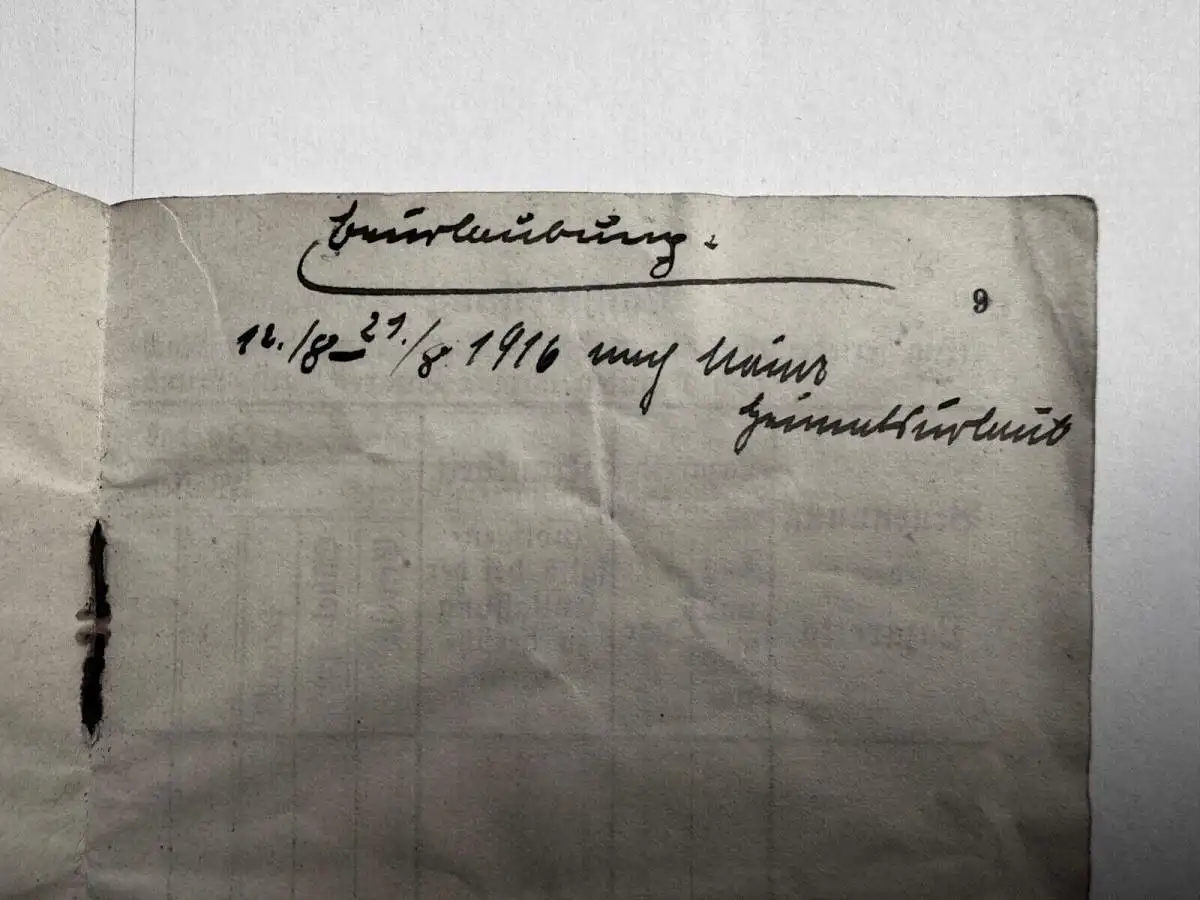 Beurlaubung.
9
12./8 – 21./8. 1916 nach Mainz
Heimatsurlaub